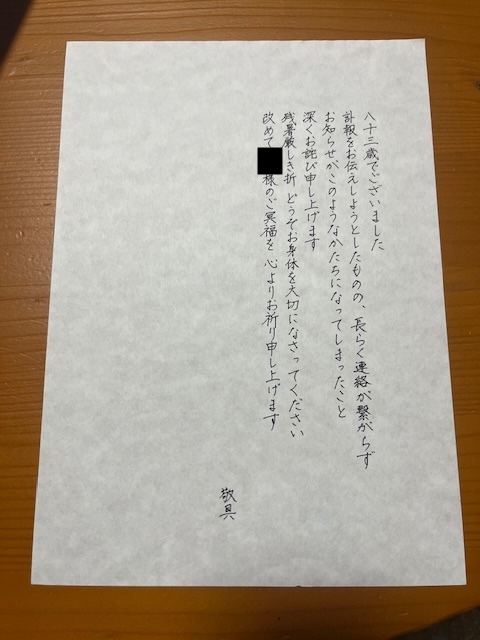 八十三歳でございました
訃報をお伝えしようとしたものの、長らく連絡が繋がらず
お知らせがこのようなかたちになってしまったこと
深くお詫び申し上げます
残暑厳しき折 どうぞお身体を大切になさってください
改めて様のご冥福を 心よりお祈り申し上げます
敬具